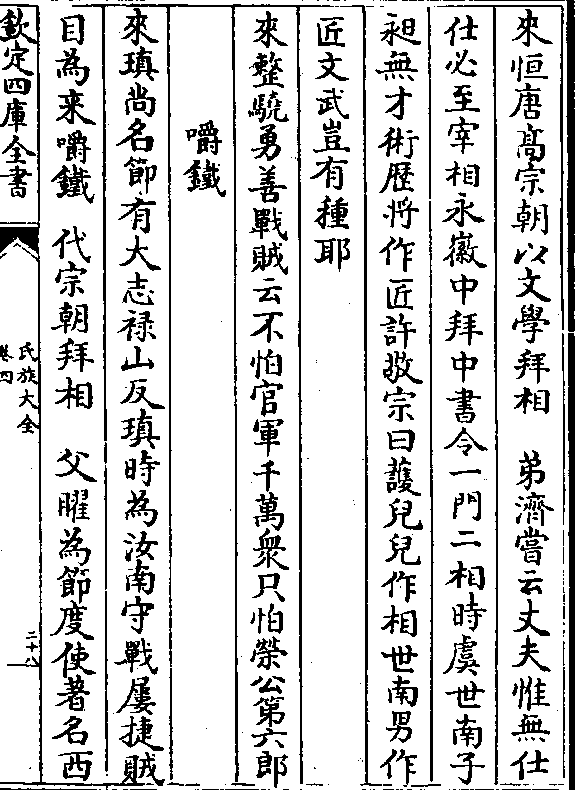 來恒唐髙宗朝以文學拜相　弟濟嘗云丈夫惟無仕
仕必至宰相永徽中拜中書令一門二相時虞世南子
昶無才術歷將作匠許敬宗曰護兒兒作相世南男作
匠文武豈有種耶
來整驍勇善戰賊云不怕官軍千萬衆只怕榮公第六郎
嚼鐵
來瑱尚名節有大志祿山反瑱時為汝南守戰屢捷賊
目為来嚼鐵　代宗朝拜相　父曜為節度使著名西
欽定四庫全書
氏族大全
卷四
二十八